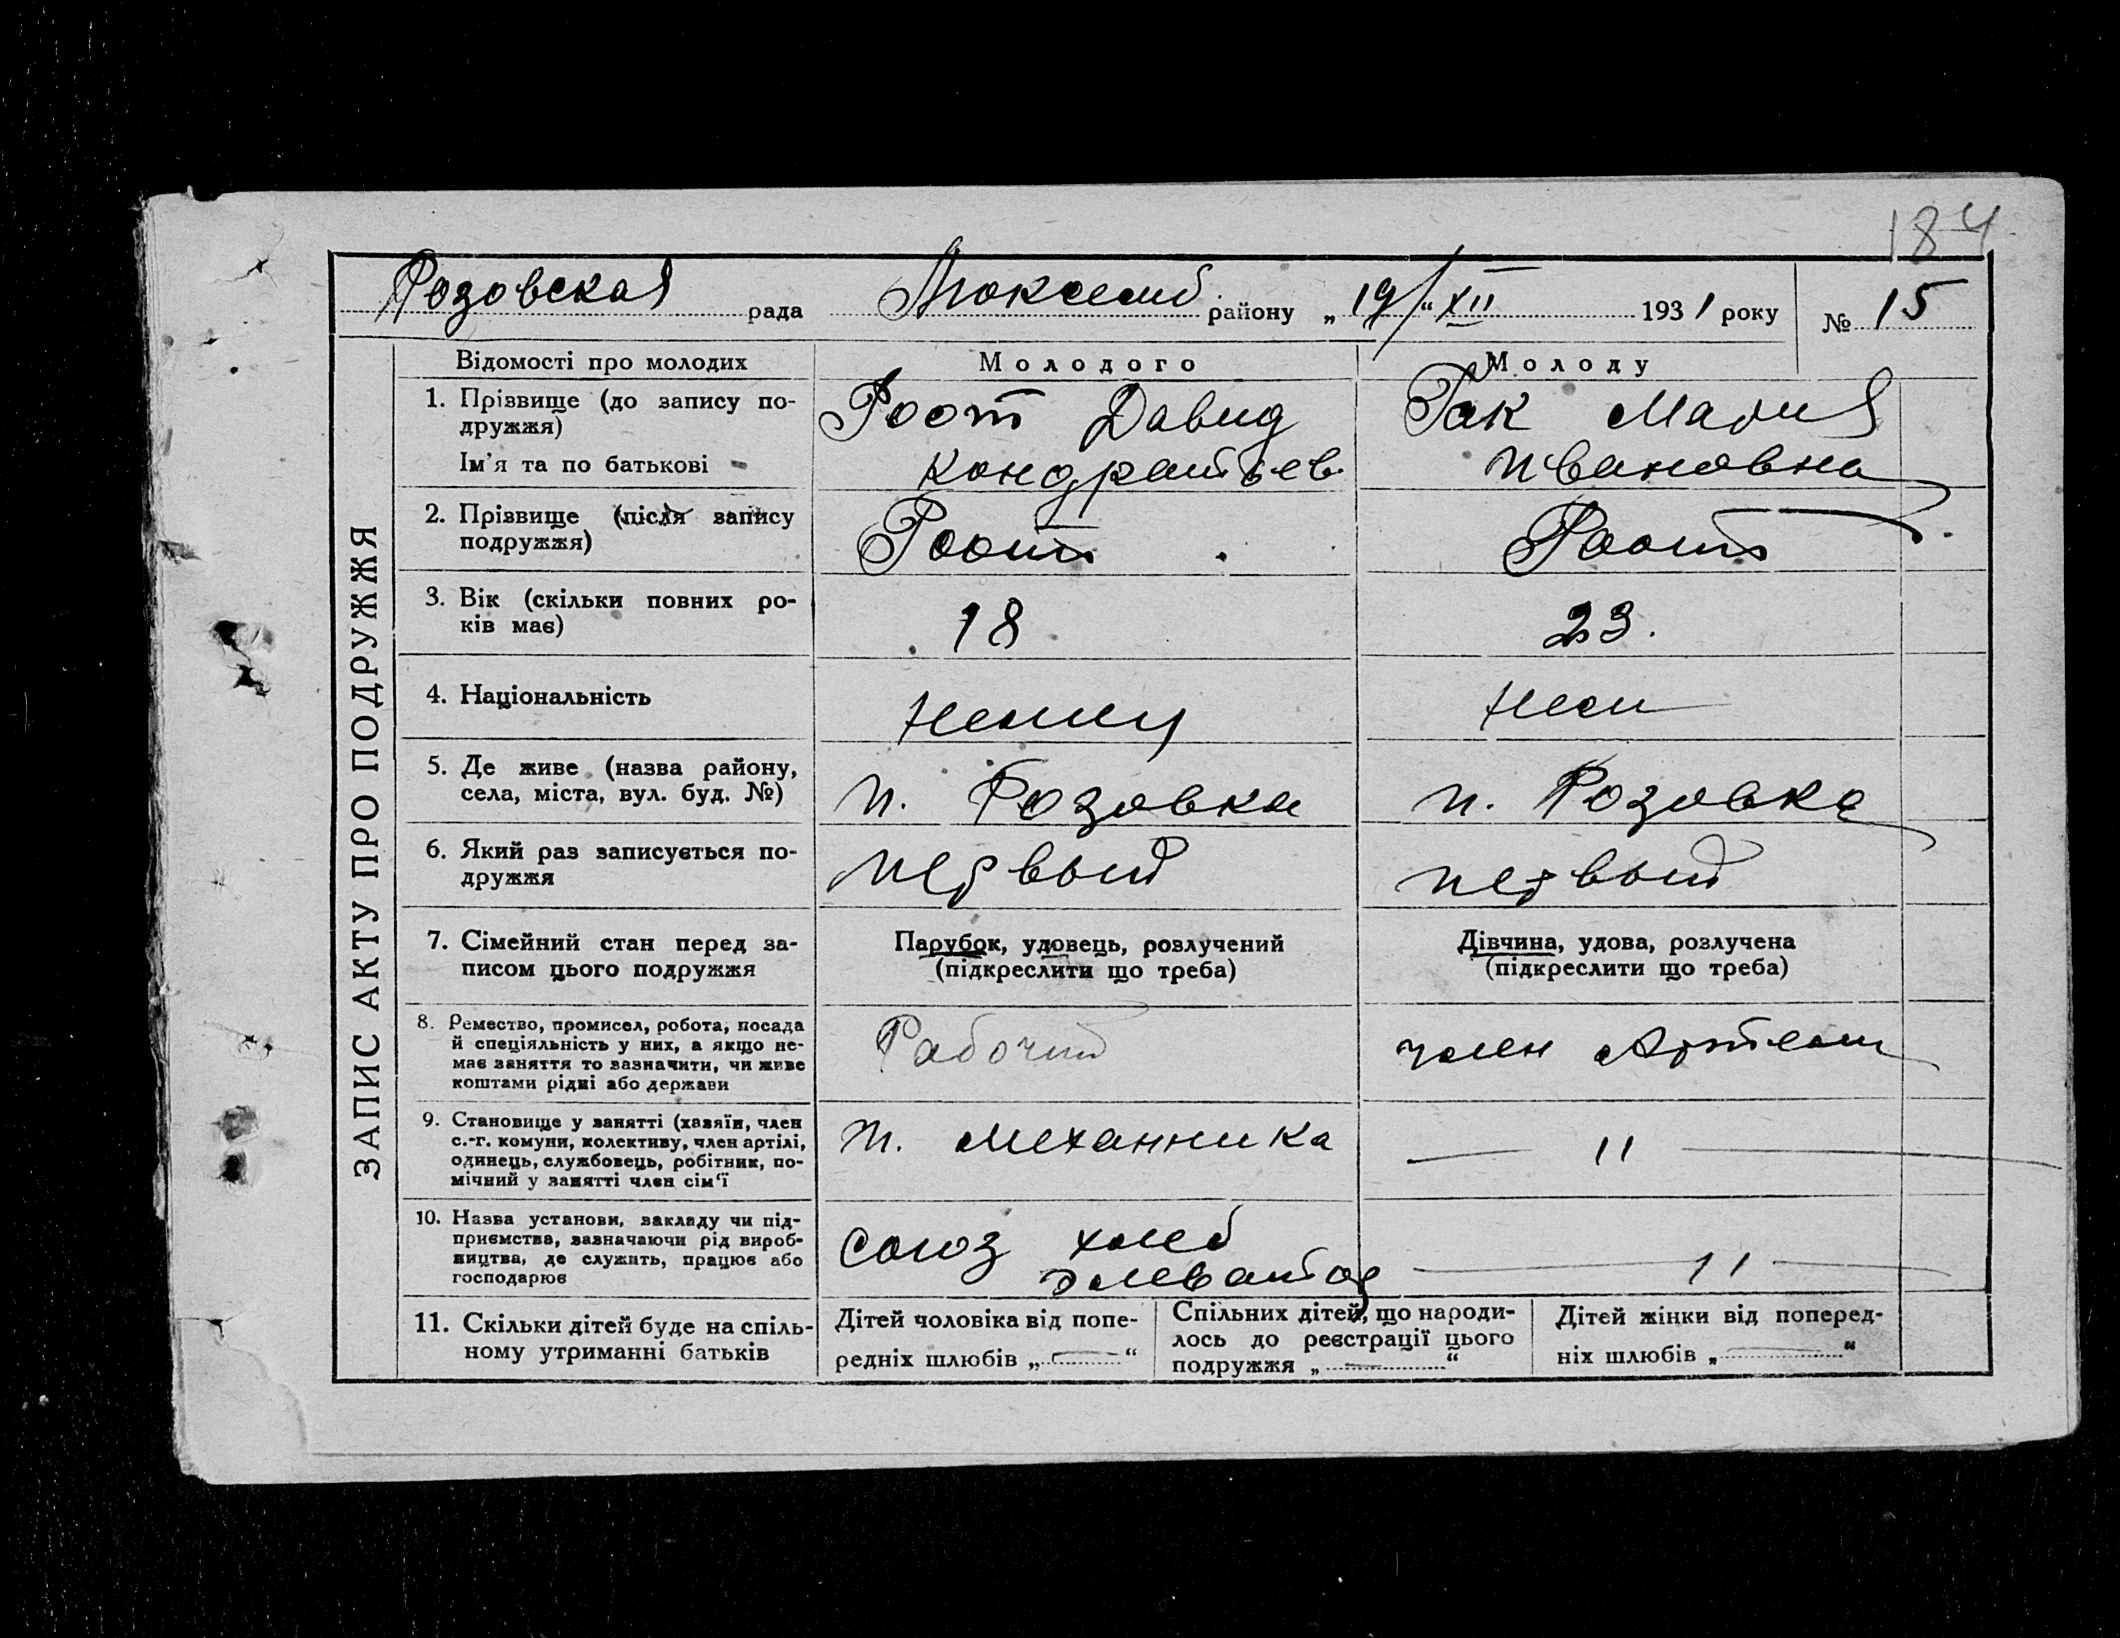 184
Розовская рада Люксемб. району „19/“ XII 1931 року № 15
ЗАПИС АКТУ ПРО ПОДРУЖЖЯ
Відомості про молодих Молодого Молоду
1. Прізвище (до запису по-
дружжя)
Ім'я та по батькові
Роот Давид
Кондратьев.
Гак Мария
Ивановна
2. Прізвище (після запису
подружжя)
Роот
Роот
3. Вік (скільки повних ро-
ків має)
18
23.
4. Національність
немец
нем
5. Де живе (назва району,
села, міста, вул. буд. №)
п. Розовка
п. Розовка
6. Який раз записується по-
дружжя
первый
первый
7. Сімейний стан перед за-
писом цього подружжя
Парубок, удовець, розлучений
(підкреслити що треба)
Дівчина, удова, розлучена
(підкреслити що треба)
8. Ремество, промисел, робота, посада
й спеціяльність у них, а якщо не-
має заняття то зазначити, чи живе
коштами рідні або держави
Рабочий
член Артели
9. Становище у занятті (хазяїн, член
с.-г. комуни, колективу, член артілі,
одинець, службовець, робітник, по-
мічний у занятті член сім'ї
п. механника
— 11 —
10. Назва установи, закладу чи під-
приємства, зазначаючи рід вироб-
ництва, де служить, працює або
господарює
союз хлеб
элеватор
— 11 —
11. Скільки дітей буде на спіль-
ному утриманні батьків
Дітей чоловіка від попе-
редніх шлюбів „—“
Спільних дітей, що народи-
лось до реєстрації цього
подружжя „—“
Дітей жінки від поперед-
ніх шлюбів „—“